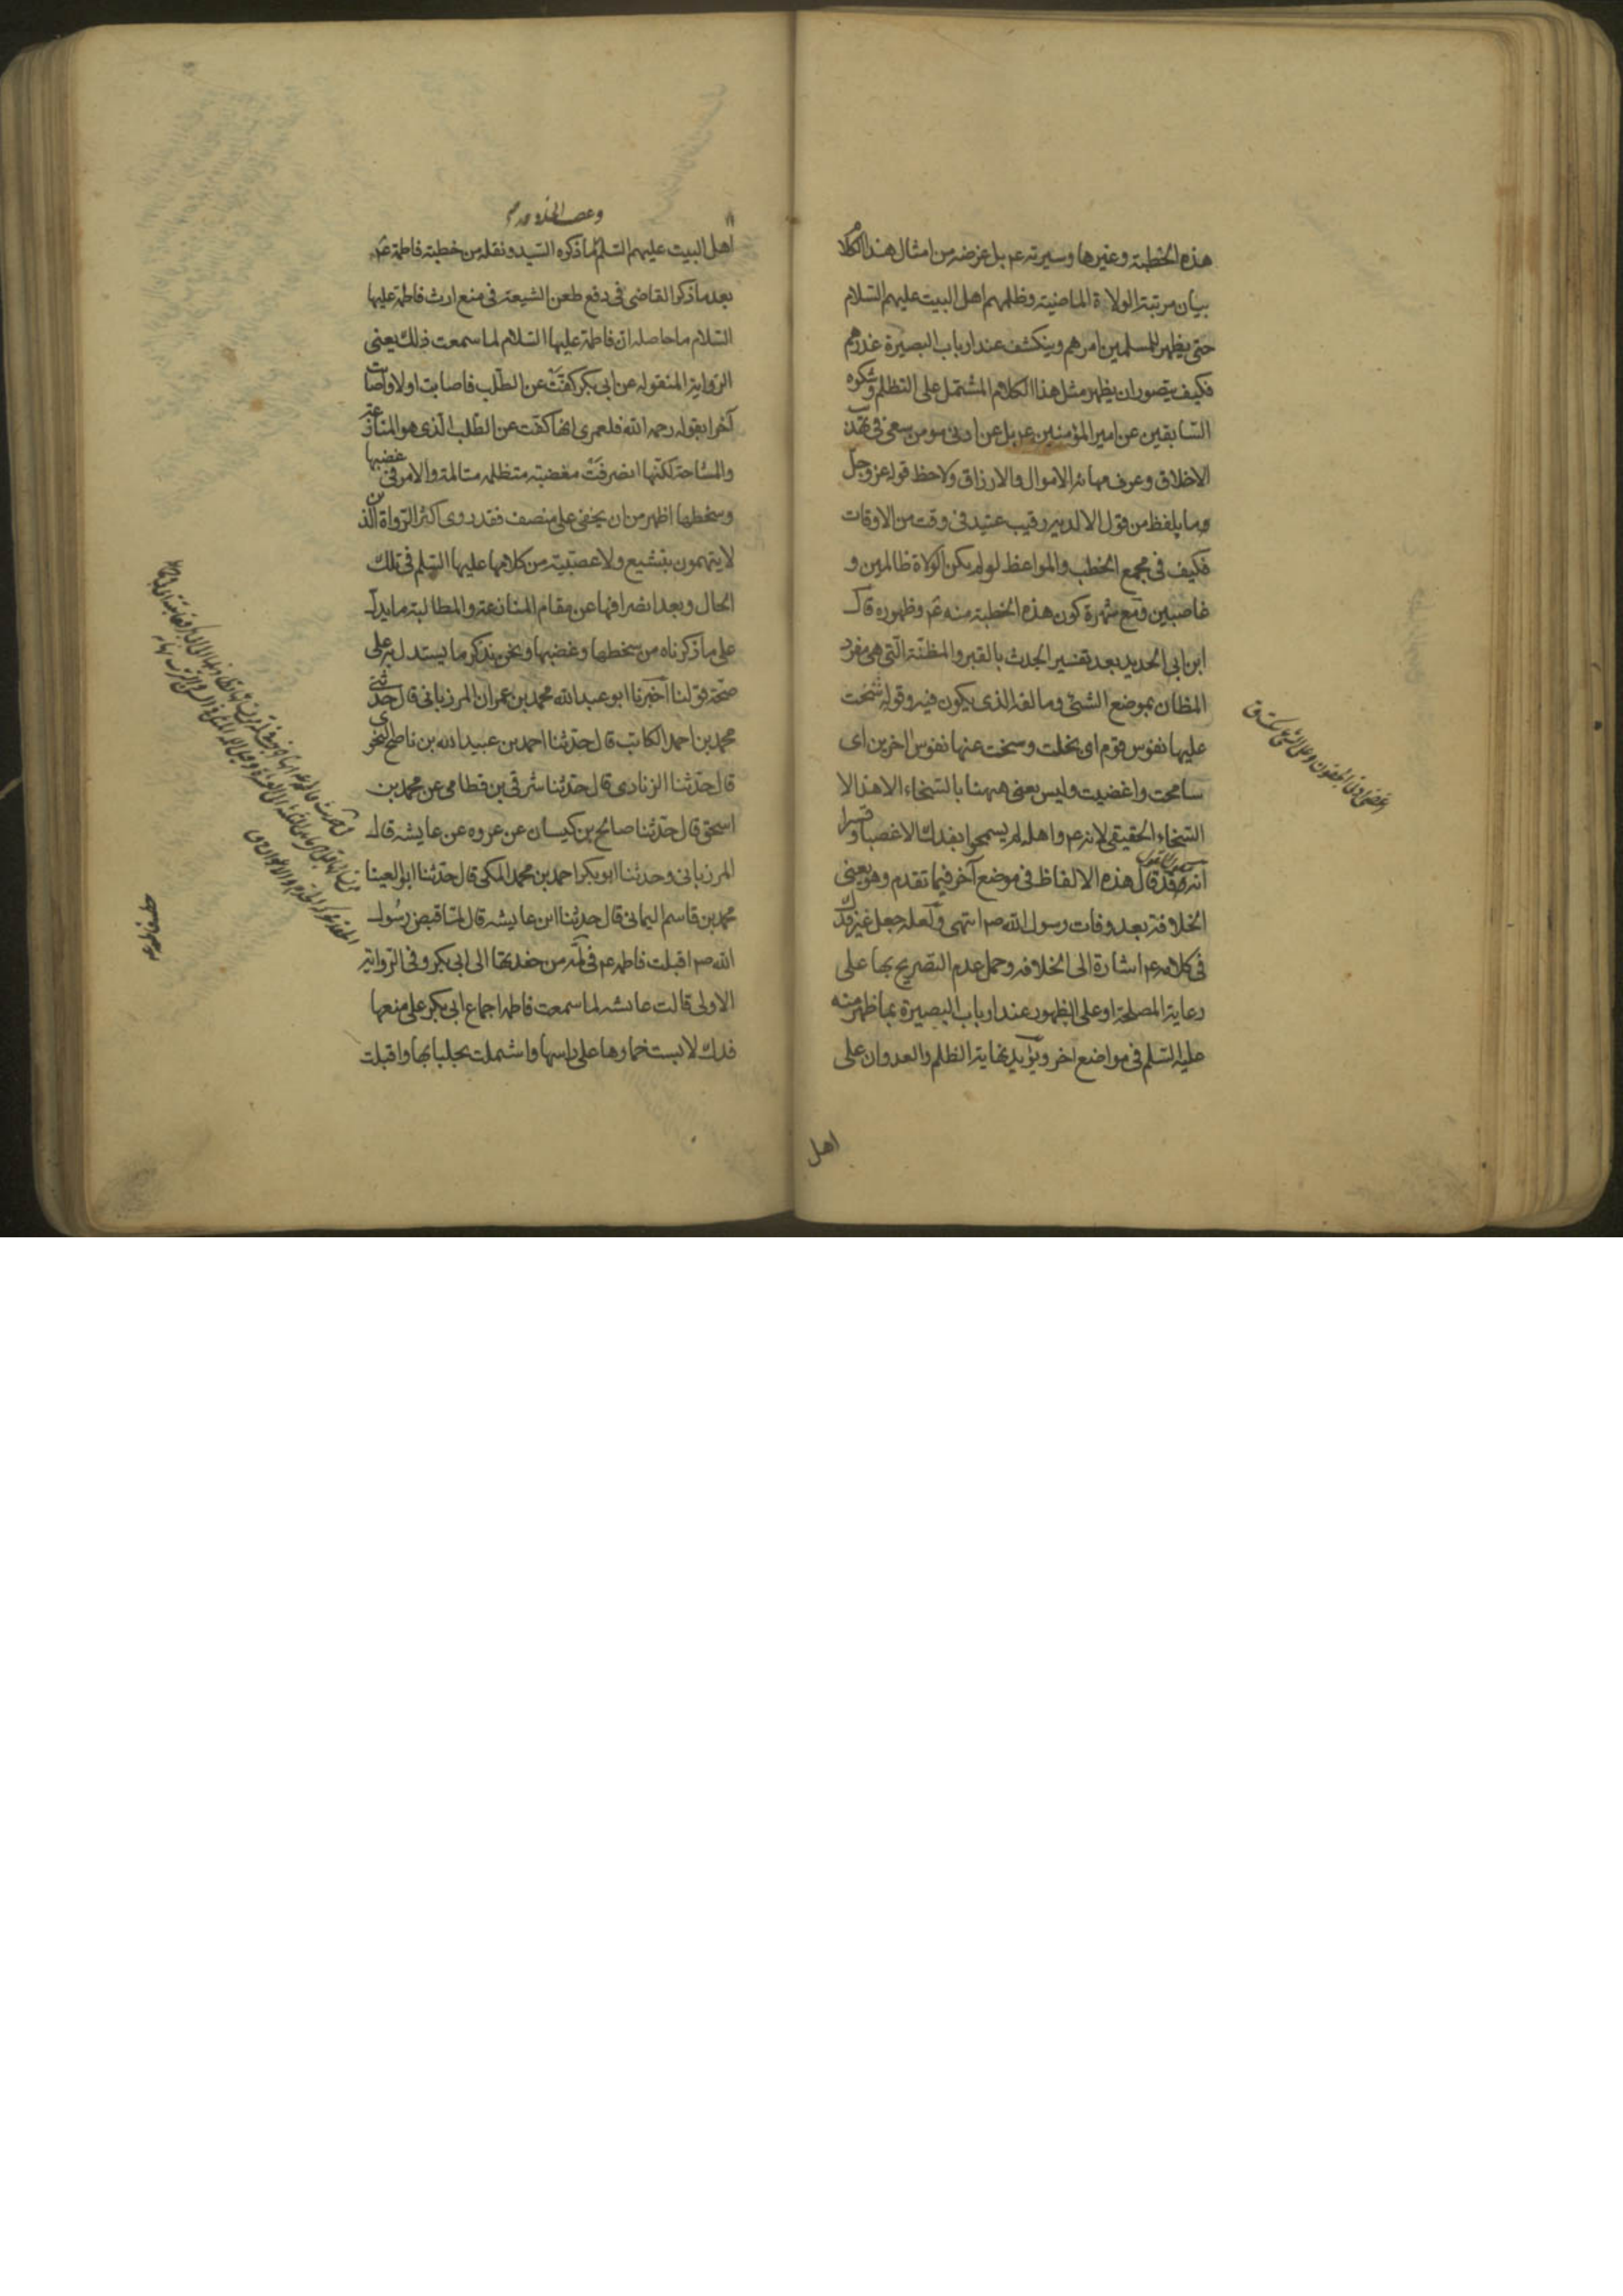 هذه الخطبة وغيرها وسيرته عم بل غرضه من امثال هذا الكلام
بيان مرتبة الولاة الماضية وظلمهم اهل البيت عليهم السلام
حتى يظهر للمسلمين امرهم وينكشف عند ارباب البصيرة غدرهم
فكيف يتصور ان يظهر مثل هذا الكلام المشتمل على التظلم وشكوه
السابقين عن امير المؤمنين عم بل عن ادنى مومن سعى في تهذيب
الاخلاق وعرف مهانة الاموال والارزاق ولاحظ قوله عز وجل
وما يلفظ من قول الا لديه رقيب عتيد في وقت من الاوقات
فكيف في مجمع الخطب والمواعظ لو لم يكن الولاة ظالمين و
غاصبين ومع شهرة كون هذه الخطبة منه عم وظهوره قال
ابن ابي الحديد بعد تفسير الجدث بالقبر والمظنة التي هي مفرد
المظان بموضع الشئ ومالفه الذي يكون فيه وقوله شحت
عليها نفوس قوم اى بخلت وسخت عنها نفوس اخرين اى
سامحت واغضيت وليس يعنى ههنا بالسخاء الا هذا لا
السخاء الحقيقى لانه عم واهله لم يسمحوا بفدك الا غصبا وقسرا
انه قد قال هذه الالفاظ فى موضع آخر فيما تقدم وهو يعنى
الخلافة بعد وفات رسول الله ص انتهى ولعله جعل غير فدك
فى كلامه عم اشارة الى الخلافه وحمل عدم التصريح بها على
رعاية المصلحة او على الظهور عند ارباب البصيرة بما ظهر منه
عليه السلم فى مواضع اخر ويؤيد نهاية الظلم والعدوان على
اهل
اهل البيت عليهم السلم ما ذكره السيد ونقله من خطبة فاطمة عم
بعد ما ذكر القاضى فى دفع طعن الشيعة فى منع ارث فاطمة عليها
السلام ما حاصله ان فاطمة عليها السلام لما سمعت ذلك يعنى
الرواية المنقوله عن ابى بكر كفت عن الطلب فاصابت اولا واصابت
آخرا بقوله رحمه الله فلعمرى انها كفت عن الطلب الذى هو المنازعة
والمشاحة لكنها انصرفت مغضبة متظلمه متالمة والامر فى غضبها
وسخطها اظهر من ان يخفى على منصف فقد روى اكثر الرواة الذين
لا يتهمون بتشيع ولا عصبية من كلامها عليها السلم فى تلك
الحال وبعد انصرافها عن مقام المنازعة والمطالبة ما يدل
على ما ذكرناه من سخطها وغضبها ونحن نذكر ما يستدل به على
صحة قولنا اخبرنا ابو عبد الله محمد بن عمران المرزبانى قال حدثنى
محمد بن احمد الكاتب قال حدثنا احمد بن عبيد الله بن ناصح النحوى
قال حدثنا الزنادى قال حدثنا شرقى بن قطامى عن محمد بن
اسحق قال حدثنا صالح بن كيسان عن عروه عن عايشه قال
المرزبانى وحدثنا ابو بكر احمد بن محمد المكى قال حدثنا ابو العينا
محمد بن قاسم اليمانى قال حدثنا ابن عايشه قال لما قبض رسول
الله ص اقبلت فاطمه عم فى لمة من حفدتها الى ابى بكر وفى الرواية
الاولى قالت عايشه لما سمعت فاطمه اجماع ابى بكر على منعها
فدك لابست خمارها على راسها واشتملت بجلبابها واقبلت
خطبه فاطمه عم